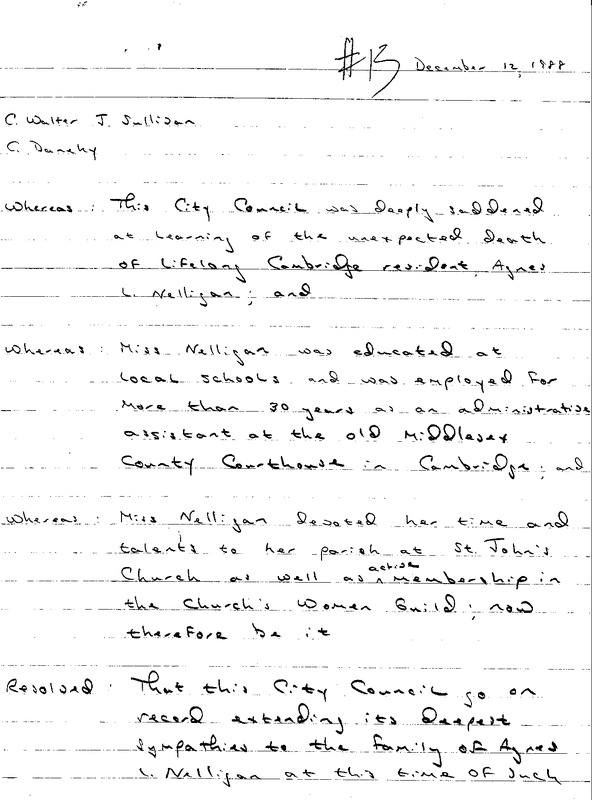 #13 December 12, 1988
C. Walter J. Sullivan
C. Danehy
Whereas : This City Council was deeply saddened
at learning of the unexpected death
of lifelong Cambridge resident, Agnes
L. Nelligan; and
Whereas : Miss Nelligan was educated at
local schools and was employed for
more than 30 years as an administrative
assistant at the old Middlesex
County Courthouse in Cambridge; and
Whereas : Miss Nelligan devoted her time and
talents to her parish at St. John's
Church as well as active membership in
the Church's Women Guild; now
therefore be it
Resolved : That this City Council go on
record extending its deepest
sympathies to the family of Agnes
L. Nelligan at this time of such